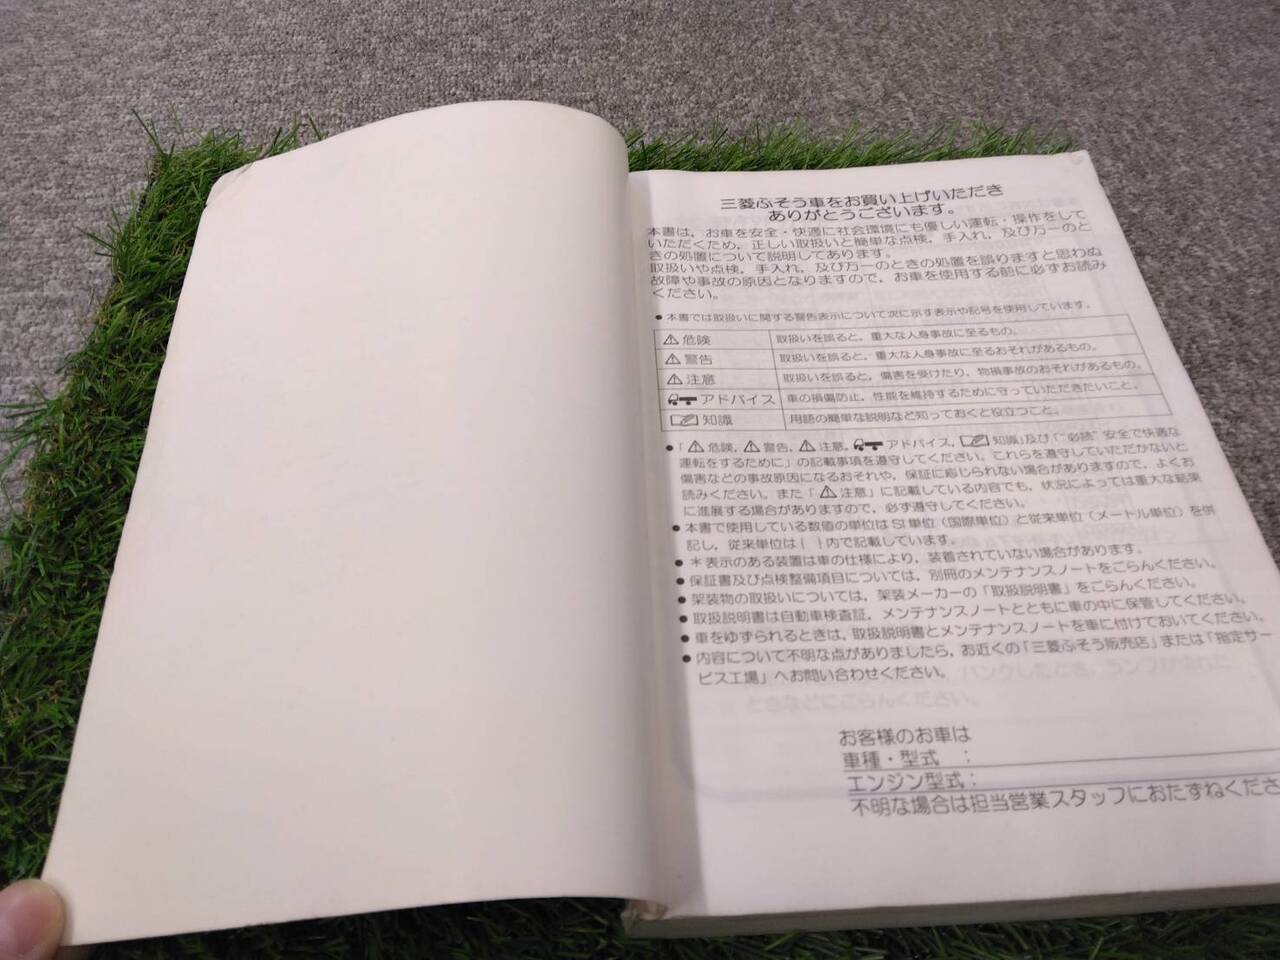 三菱ふそう車をお買い上げいただき
ありがとうございます。
本書は、お車を安全・快適に社会環境にも優しい運転・操作をして
いただくため、正しい取扱いと簡単な点検、手入れ、及び万一のと
きの処置について説明してあります。
取扱いや点検、手入れ、及び万一のときの処置を誤りますと思わぬ
故障や事故の原因となりますので、お車を使用する前に必ずお読み
ください。
●本書では取扱いに関する警告表示について次に示す表示や記号を使用しています。
⚠危険 取扱いを誤ると、重大な人身事故に至るもの。
⚠警告 取扱いを誤ると、重大な人身事故に至るおそれがあるもの。
⚠注意 取扱いを誤ると、傷害を受けたり、物損事故のおそれがあるもの。
アドバイス 車の損傷防止、性能を維持するために守っていただきたいこと。
知識 用語の簡単な説明など知っておくと役立つこと。
●「⚠危険、⚠警告、⚠注意、アドバイス、知識」及び「“必読”安全で快適な
運転をするために」の記載事項を遵守してください。これらを遵守していただかないと
傷害などの事故原因になるおそれや、保証に応じられない場合がありますので、よくお
読みください。また「⚠注意」に記載している内容でも、状況によっては重大な結果
に進展する場合がありますので、必ず遵守してください。
●本書で使用している数値の単位はSI単位（国際単位）と従来単位（メートル単位）を併
記し、従来単位は{ }内で記載しています。
●＊表示のある装置は車の仕様により、装着されていない場合があります。
●保証書及び点検整備項目については、別冊のメンテナンスノートをごらんください。
●架装物の取扱いについては、架装メーカーの「取扱説明書」をごらんください。
●取扱説明書は自動車検査証、メンテナンスノートとともに車の中に保管してください。
●車をゆずられるときは、取扱説明書とメンテナンスノートを車に付けておいてください。
●内容について不明な点がありましたら、お近くの「三菱ふそう販売店」または「指定サー
ビス工場」へお問い合わせください。
お客様のお車は
車種・型式 ：
エンジン型式：
不明な場合は担当営業スタッフにおたずねくださ